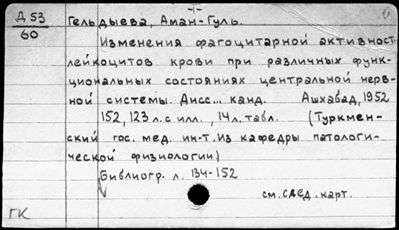 Д 53
60
Гельдыева, Аман-Гуль.
Изменения фагоцитарной активност
лейкоцитов крови при различных функ-
циональных состояниях центральной нерв-
ной системы. Дисс... канд. Ашхабад, 1952
152, 123 л. с илл., 14 л. табл. (Туркмен-
ский гос. мед. ин-т. Из кафедры патологи-
ческой физиологии)
Библиогр. л. 134-152
см. след. карт.
ГК